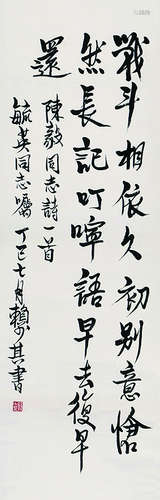 戰斗相依久初别意愴
然長記叮嚀語早去復早
還
陳毅同志詩一首
毓英同志囑 丁巳七月賴少其書